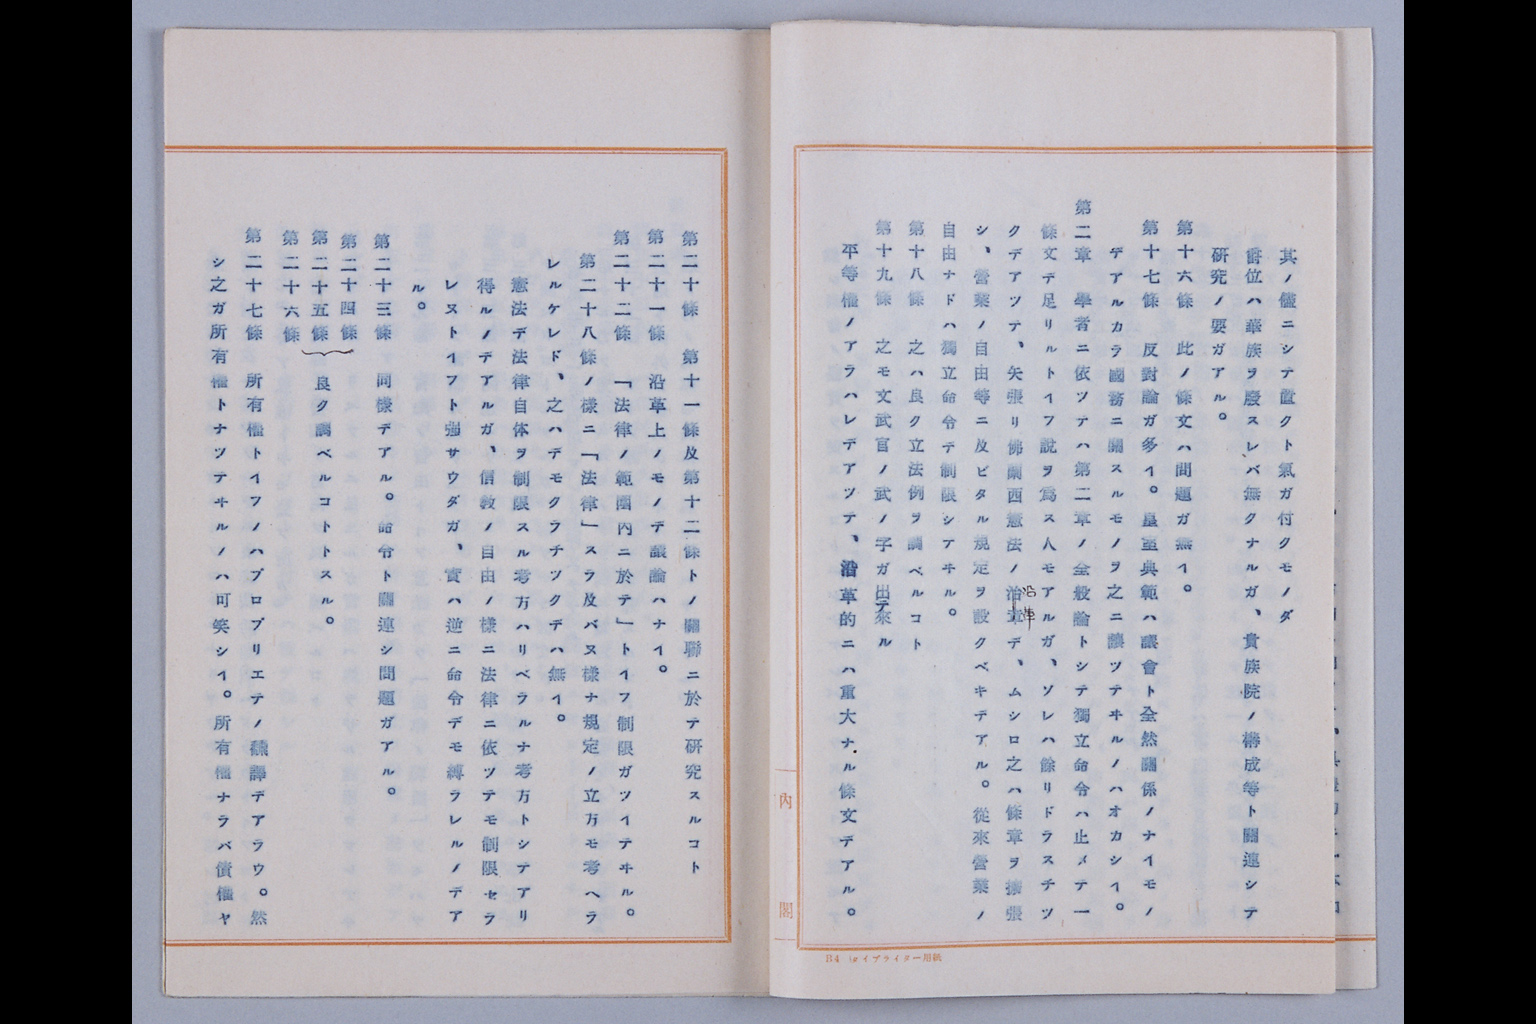 其ノ儘ニシテ置クト氣ガ付クモノダ
爵位ハ華族ヲ廢スレバ無クナルガ、貴族院ノ構成等ト關連シテ
研究ノ要ガアル。
第十六條　此ノ條文ハ問題ガ無イ。
第十七條　反對論ガ多イ。皇室典範ハ議會ト全然關係ノナイモノ
デアルカラ國務ニ關スルモノヲ之ニ讓ツテヰルノハオカシイ。
第二章　學者ニ依ツテハ第二章ノ全般論トシテ獨立命令ハ止メテ一
條文デ足リルトイフ說ヲ爲ス人モアルガ、ソレハ餘リドラスチツ
クデアツテ、矢張リ佛蘭西憲法ノ治章デ、ムシロ之ハ條章ヲ擴張
沿革
シ、營業ノ自由等ニ及ビタル規定ヲ設クベキデアル。從來營業ノ
自由ナドハ獨立命令デ制限シテヰル。
第十八條　之ハ良ク立法例ヲ調ベルコト
第十九條　之モ文武官ノ武ノ字ガ出テ來ル
平等權ノアラハレデアツテ、沿革的ニハ重大ナル條文デアル。
內閣
B4 タイプライター用紙
第二十條　第十一條及第十二條トノ關聯ニ於テ硏究スルコト
第二十一條　沿革上ノモノデ議論ハナイ。
第二十二條　「法律ノ範圍內ニ於テ」トイフ制限ガツイテヰル。
第二十八條ノ樣ニ「法律」スラ及バヌ樣ナ規定ノ立方モ考ヘラ
レルケレド、之ハデモクラチツクデハ無イ。
憲法デ法律自体ヲ制限スル考方ハリベラルナ考方トシテアリ
得ルノデアルガ、信敎ノ自由ノ樣ニ法律ニ依ツテモ制限セラ
レヌトイフト强サウダガ、實ハ逆ニ命令デモ縛ラレルノデア
ル。
第二十三條　同樣デアル。命令ト關連シ問題ガアル。
第二十四條
第二十五條　良ク調ベルコトトスル。
第二十六條
第二十七條　所有權トイフノハプロプリエテノ飜譯デアラウ。然
シ之ガ所有權トナツテヰルノハ可笑シイ。所有權ナラバ債權ヤ